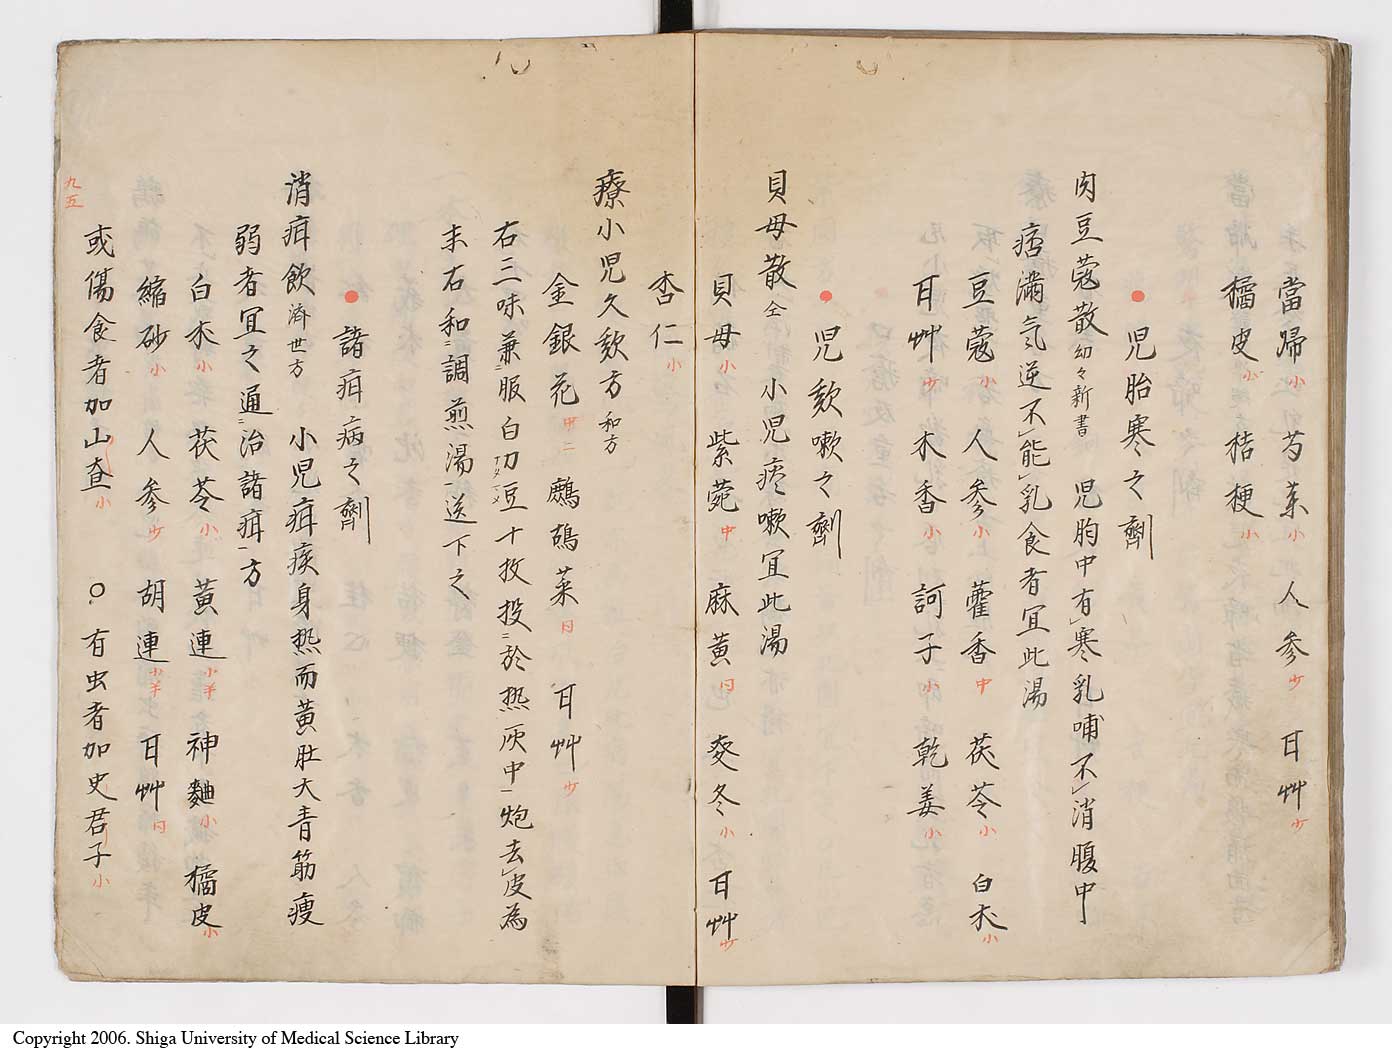 當歸小 芍薬小 人参少 甘艸少
橘皮小 桔梗小
● 児胎寒之劑
肉豆蔻散幼々新書 児胸中有寒乳哺不消腹中
痞満氣逆不能乳食者宜此湯
豆蔻小 人参小 藿香中 茯苓小 白朮小
甘艸少 木香小 訶子小 乾姜小
● 児欬嗽之劑
貝母散仝 小児痰嗽宜此湯
貝母小 紫菀中 麻黄同 麥冬小 甘艸少
杏仁小
療小児久欬方和方
金銀花中二 鷓鴣菜同 甘艸少
右三味兼服白刀豆ナタマメ十枚投ニ於熱灰中一炮去皮為
末右和ニ調煎湯一送下之
● 諸疳病之劑
消疳飲済世方 小児疳疾身熱而黄肚大青筋痩
弱者宜之通ニ治諸疳一方
白朮小 茯苓小 黄連小半 神麯小 橘皮小
縮砂小 人参少 胡連小半 甘艸同
或傷食者加山査小 ○有虫者加史君子小
九五
Copyright 2006. Shiga University of Medical Science Library